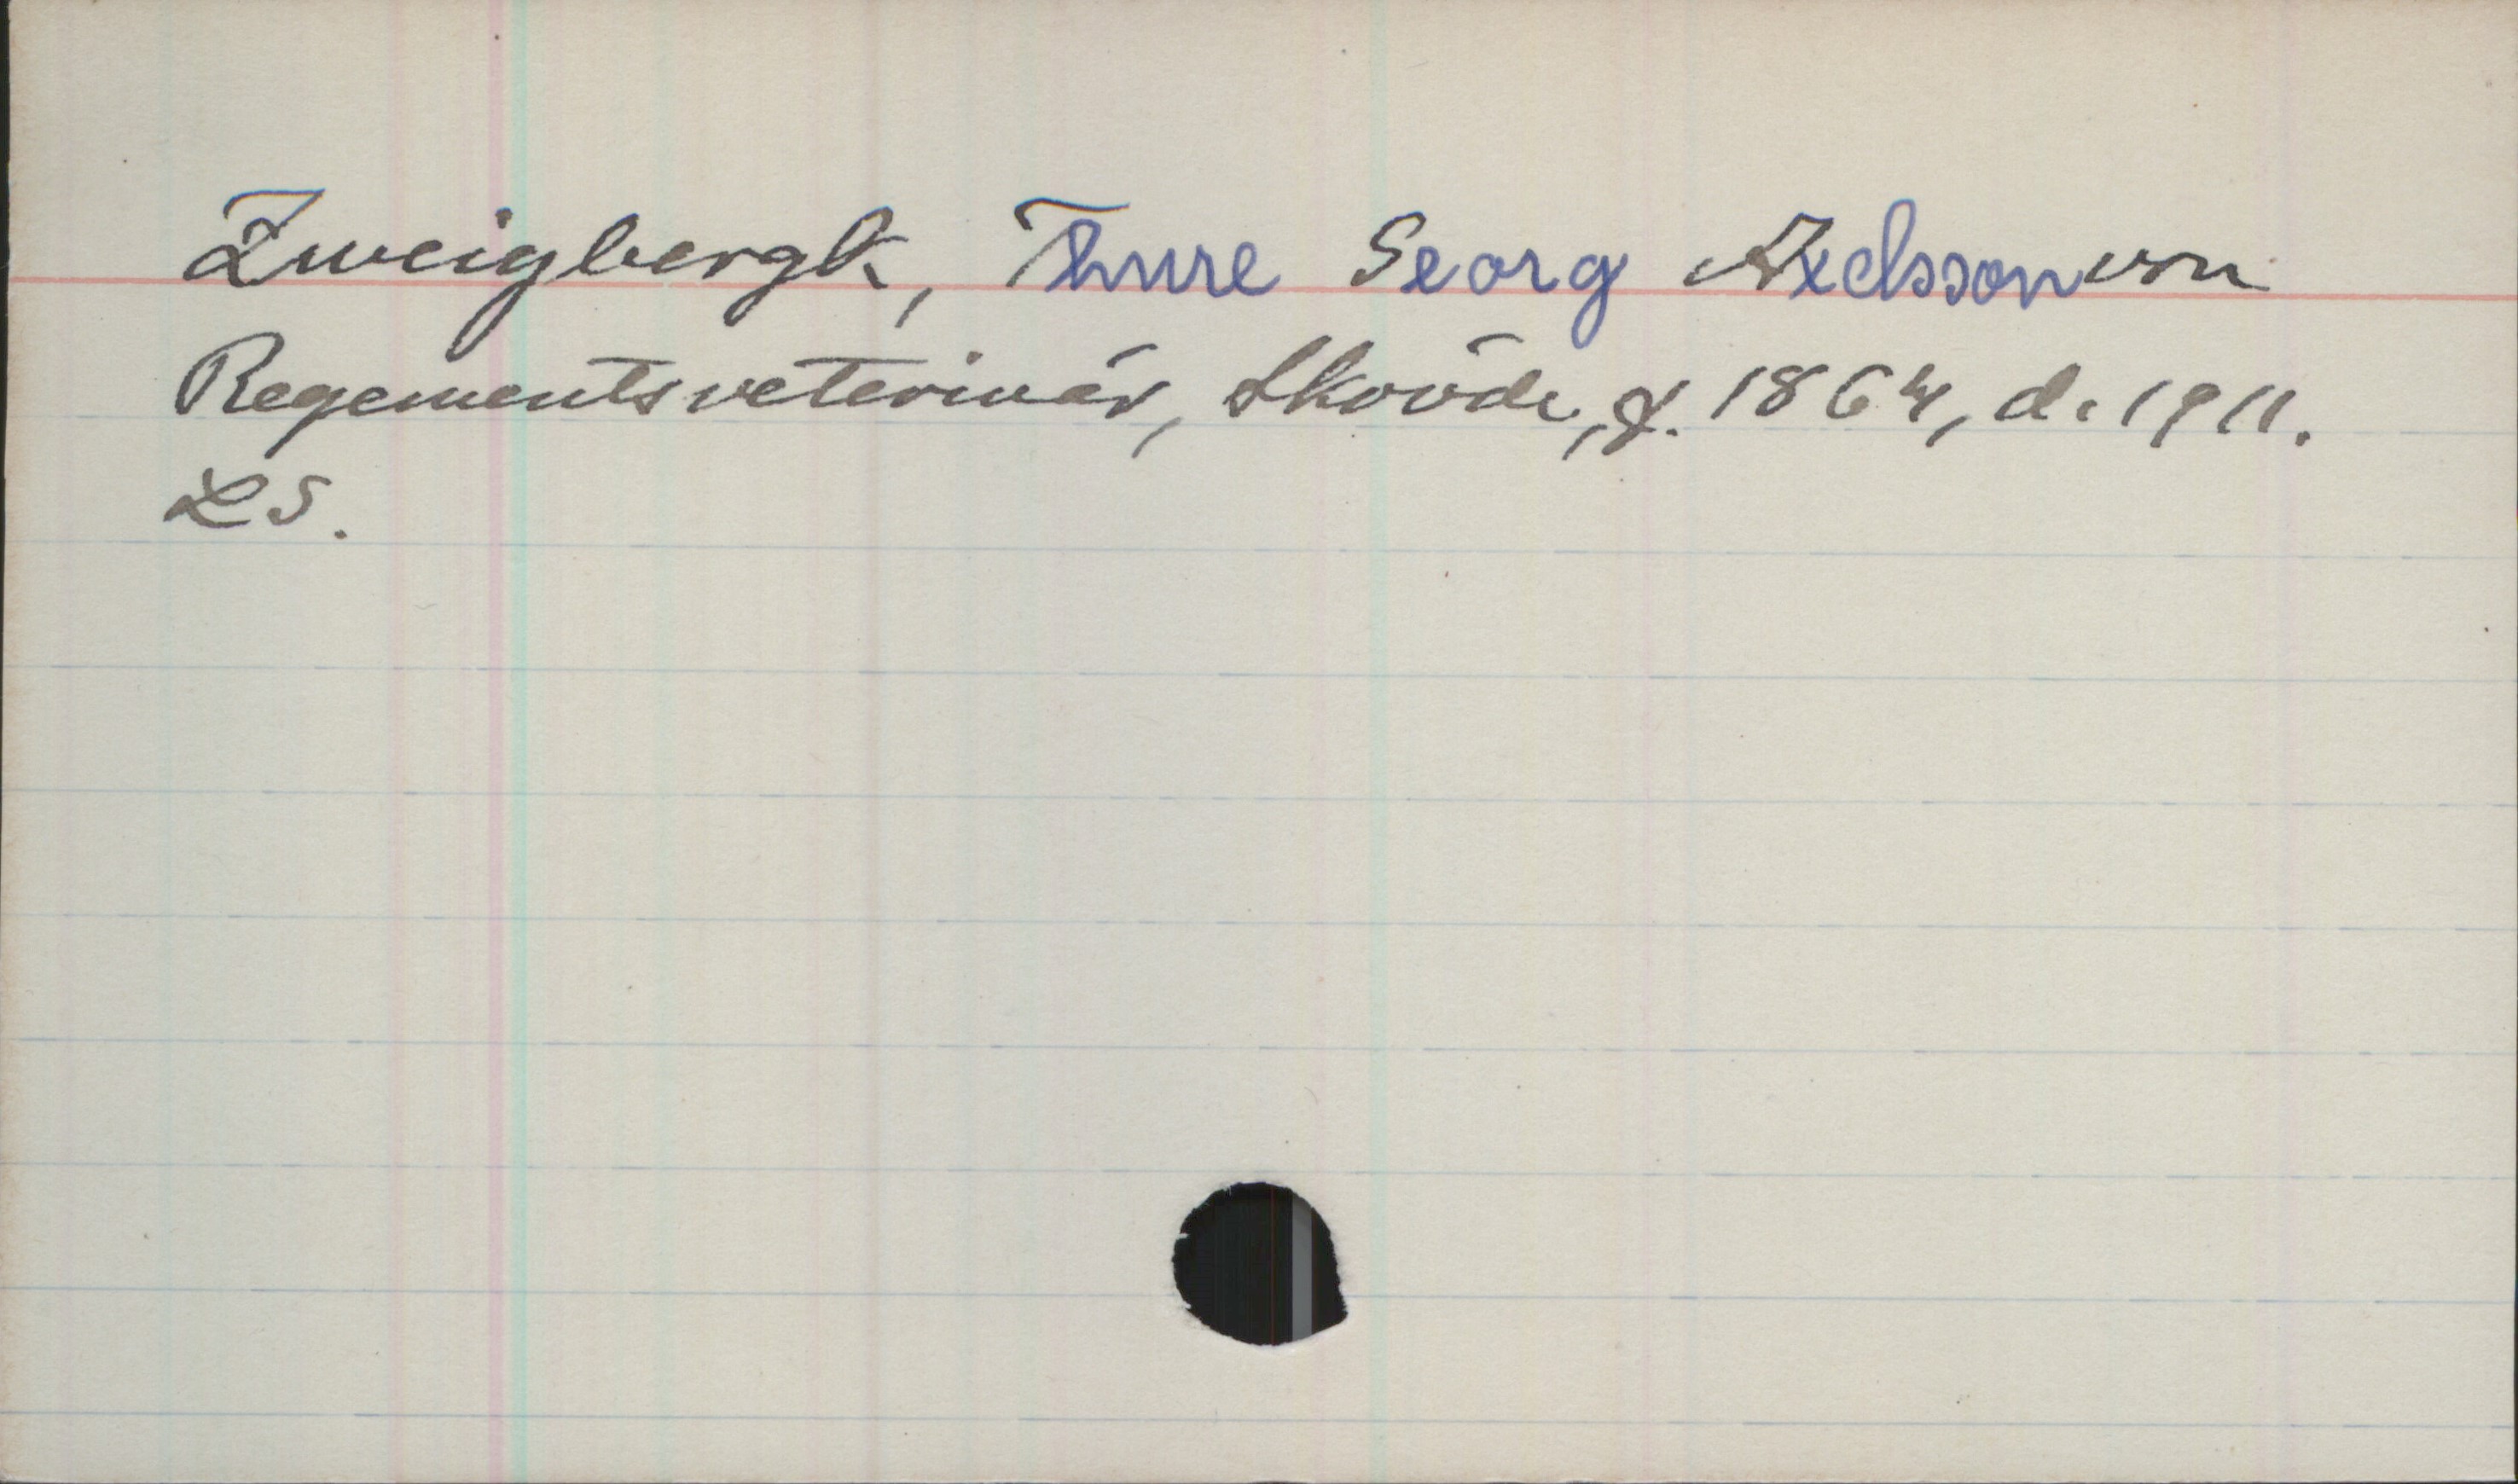 Zweigbergk, Thure Georg Axelsson von
Regementsveterinär, Skövde, f. 1864, d. 1911.
LS.